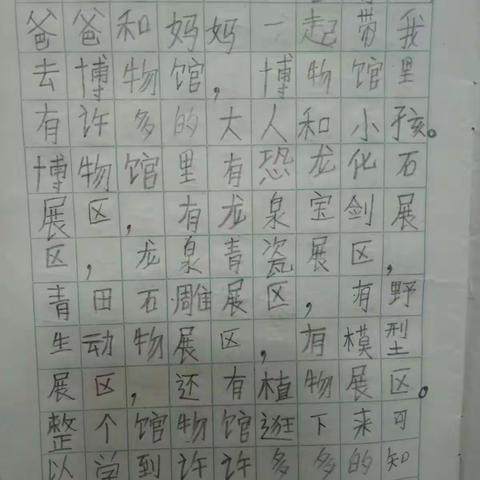 爸爸和妈妈一起带我
去博物馆，博物馆里
有许多的大人和小孩。
博物馆里有恐龙化石
展区，有龙泉宝剑展
区，龙泉青瓷展区，
青田石雕展区，有野
生动物展区，有模型
展区，还有植物展区。
整个馆物馆逛下来可
以学到许许多多的知